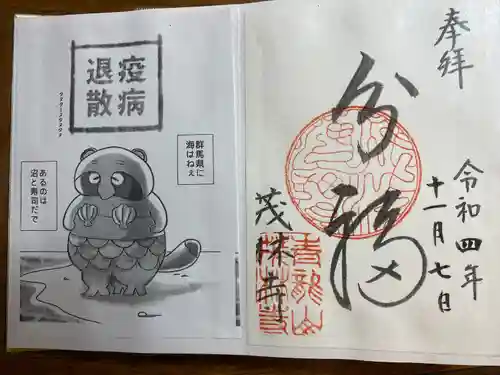 疫病
退散
群馬県に
海はねぇ
あるのは
沼と寿司だで
奉拝
分福
令和四年
十一月七日
茂林寺